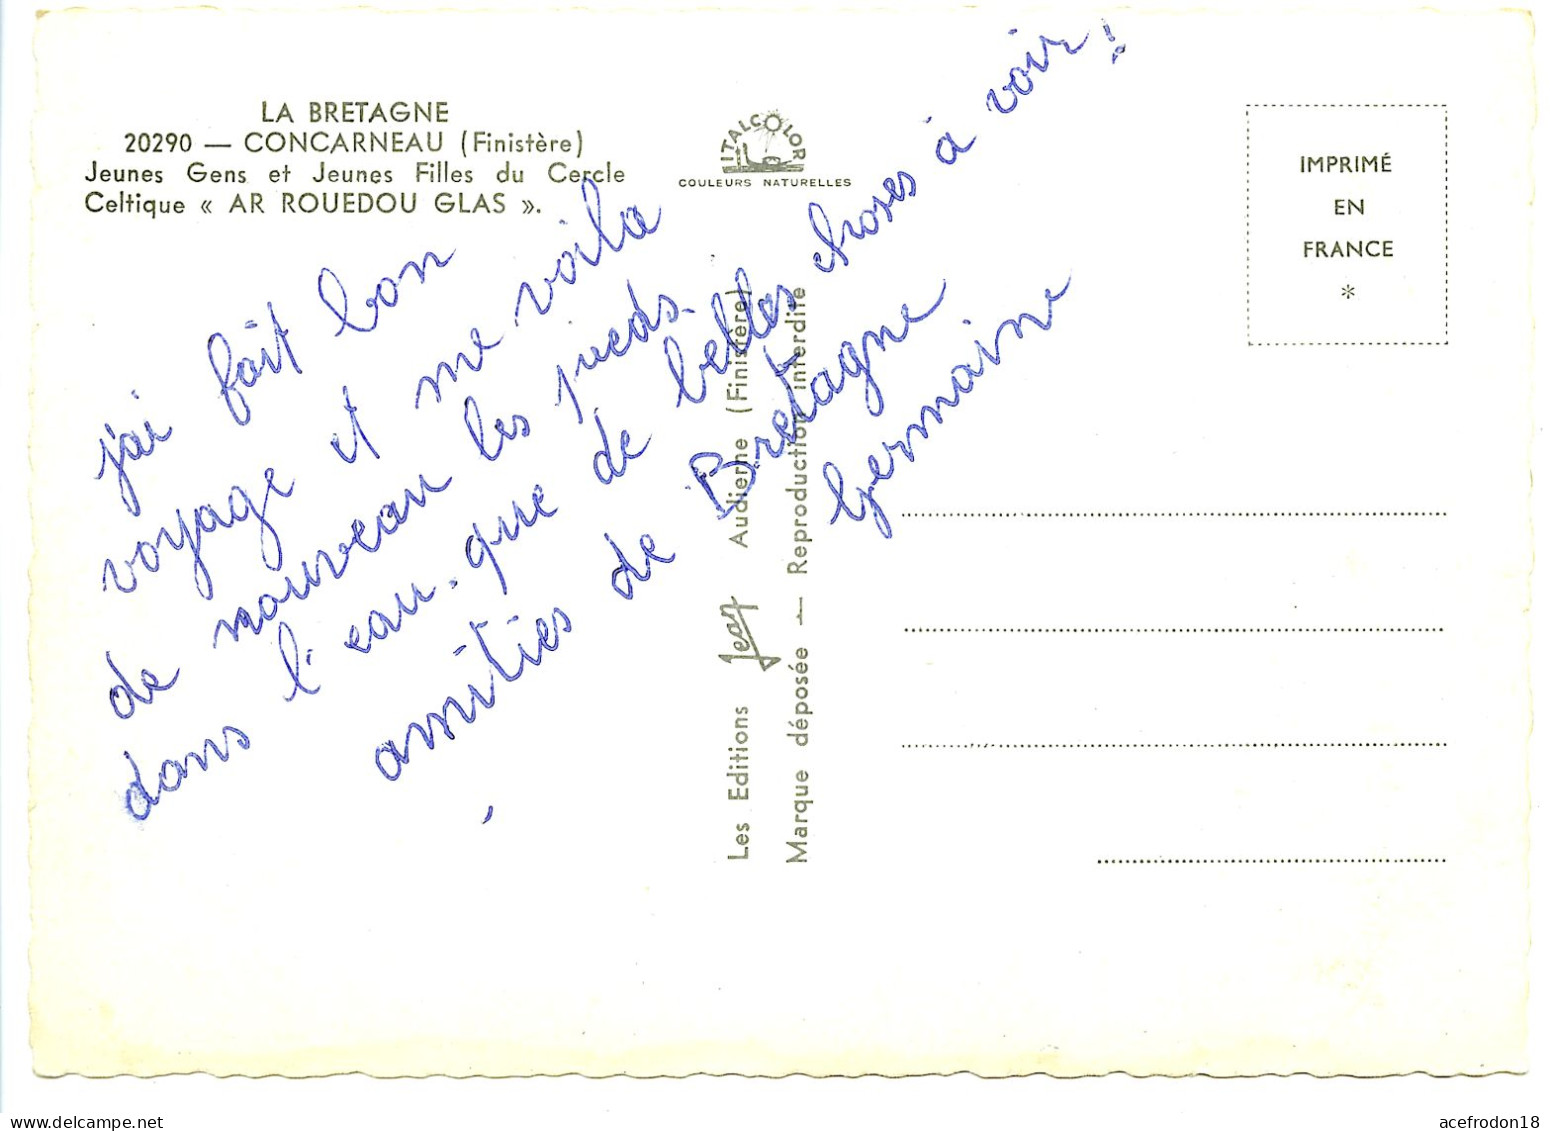 LA BRETAGNE
20290 — CONCARNEAU (Finistère)
Jeunes Gens et Jeunes Filles du Cercle
Celtique « AR ROUEDOU GLAS ».
ITALCOLOR
COULEURS NATURELLES
j'ai fait bon
voyage et me voila
de nouveau les pieds
dans l'eau. que de belles choses à voir!
amitiés de Bretagne
Germaine
Les Editions Jean Audierne (Finistère)
Marque déposée — Reproduction interdite
IMPRIMÉ
EN
FRANCE
*
acefrodon18